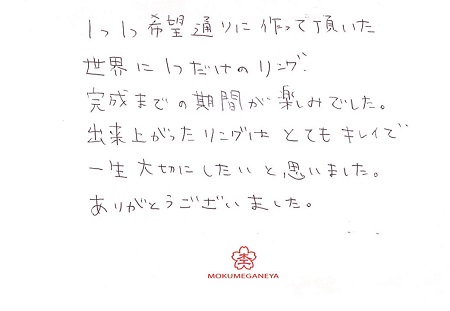 1つ1つ希望通りに作って頂いた
世界に1つだけのリング。
完成までの期間が楽しみでした。
出来上がったリングは とても キレイで
一生大切にしたいと思いました。
ありがとうございました。
MOKUMEGANEYA